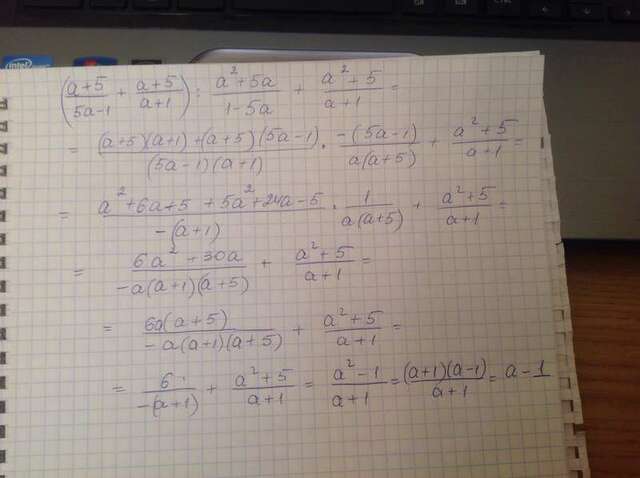 ((a+5)/(5a-1) + (a+5)/(a+1)) : (a²+5a)/(1-5a) + (a²+5)/(a+1) =
= ((a+5)(a+1)+(a+5)(5a-1))/((5a-1)(a+1)) · (-(5a-1))/(a(a+5)) + (a²+5)/(a+1) =
= (a²+6a+5+5a²+24a-5)/(-(a+1)) · 1/(a(a+5)) + (a²+5)/(a+1) =
= (6a²+30a)/(-a(a+1)(a+5)) + (a²+5)/(a+1) =
= (6a(a+5))/(-a(a+1)(a+5)) + (a²+5)/(a+1) =
= 6/(-(a+1)) + (a²+5)/(a+1) = (a²-1)/(a+1) = ((a+1)(a-1))/(a+1) = a-1